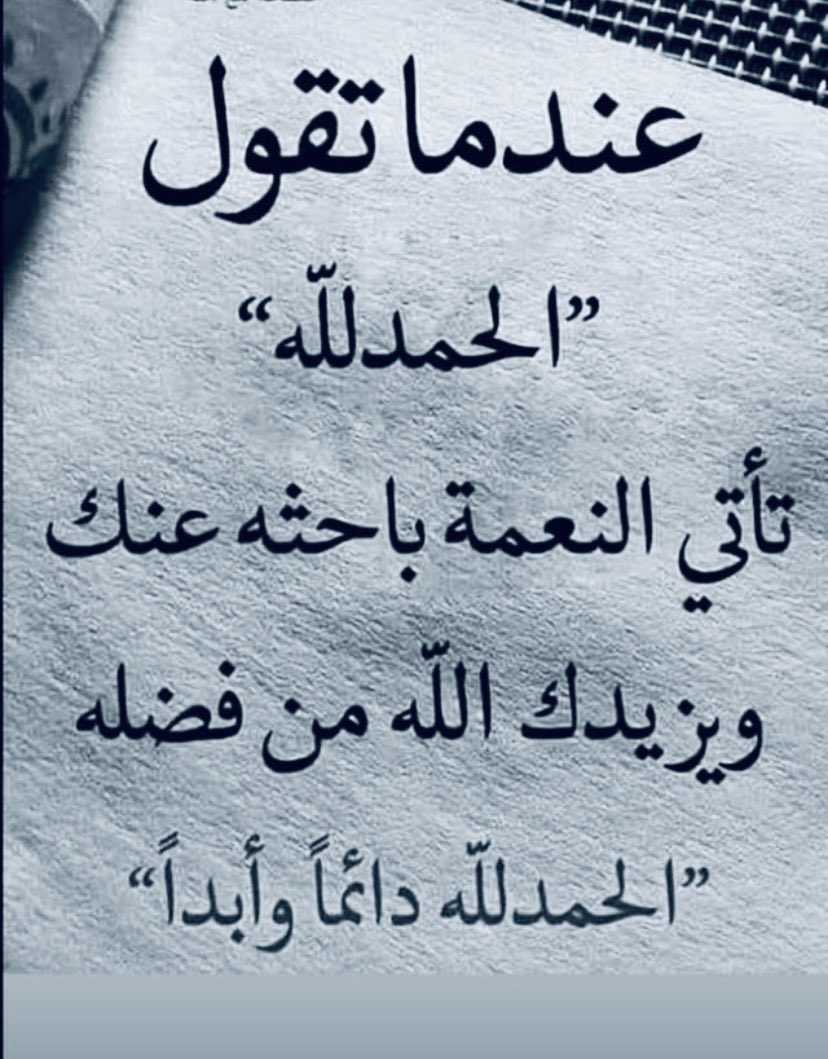 عندما تقول
”الحمدلله“
تأتي النعمة باحثه عنك
ويزيدك الله من فضله
”الحمدلله دائماً وأبداً“